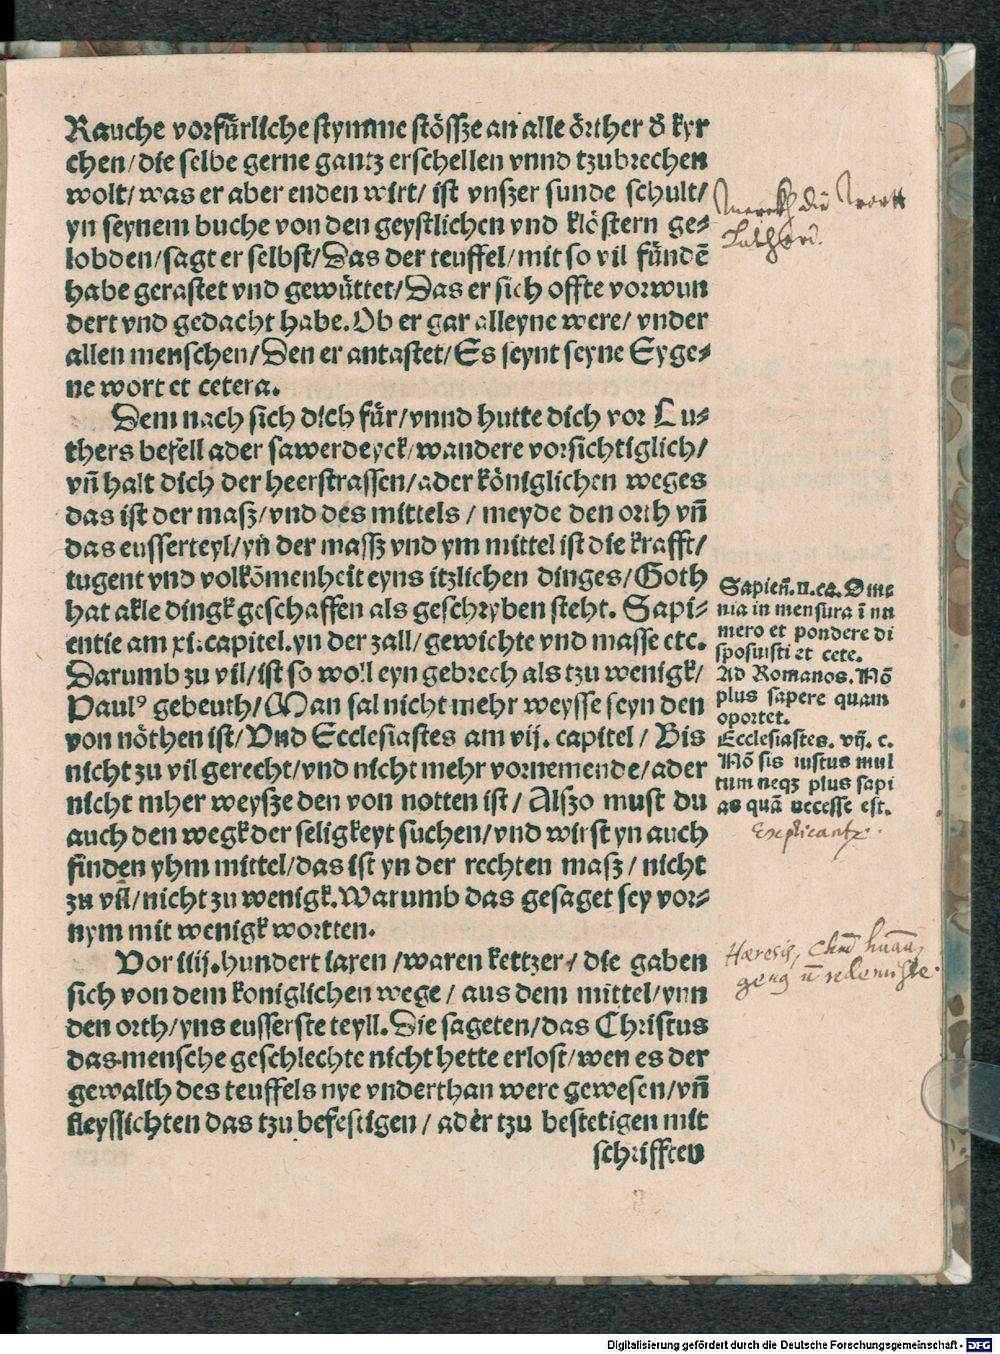 Rauche vorfürliche stymme stössze an alle örther d̕ kyr
chen/die selbe gerne gantz erschellen vnnd tzubrechen
wolt/was er aber enden wirt/ ist vnszer sunde schult/
yn seynem buche von den geystlichen vnd klöstern ge⸗
lobden/sagt er selbst/Das der teuffel/mit so vil fündē
habe gerastet vnd gewüttet/Das er sich offte vorwun
dert vnd gedacht habe. Ob er gar alleyne were/ vnder
allen menschen/Den er antastet/Es seynt seyne Eyge⸗
ne wort et cetera.
Dem nach sich dich für/vnnd hutte dich vor Lu⸗
thers befell ader sawerdeyck/wandere vorsichtiglich/
vn̄ halt dich der heerstrassen/ader königlichen weges
das ist der masz/vnd des mittels / meyde den orth vn̄
das eusserteyl/yn̄ der massz vnd ym mittel ist die krafft/
tugent vnd volkōmenheit eyns itzlichen dinges/Goth
hat alle dingk geschaffen als geschryben steht. Sapi⸗
entie am xi. capitel. yn der zall/gewichte vnd masse etc.
Darumb zu vil/ist so woll eyn gebrech als tzu wenigk/
Paulꝰ gebeuth/Man sal nicht mehr weysse seyn den
von nöthen ist/Vnd Ecclesiastes am vij. capitel / Bis
nicht zu vil gerecht/vnd nicht mehr vornemende/ader
nicht mher weysze den von notten ist/ Alszo must du
auch den wegk der seligkeyt suchen/vnd wirst yn auch
finden yhm mittel/das ist yn der rechten masz/ nicht
zu vil/nicht zu wenigk. Warumb das gesaget sey vor⸗
nym mit wenigk wortten.
Vor iiij. hundert iaren /waren kettzer/ die gaben
sich von dem koniglichen wege / aus dem mittel/ynn
den orth/yns eusserste teyll. Die sageten/das Christus
das mensche geschlechte nicht hette erlost/wen es der
gewalth des teuffels nye vnderthan were gewesen/vn̄
fleyssichten das tzu befestigen / ader tzu bestetigen mit
schrifften
Sapien̄. 11. ca. Om̄e
nia in mensura ī nu
mero et pondere di
sposuisti et cete.
Ad Romanos. Nō
plus sapere quam
oportet.
Ecclesiastes. vij. c.
Nō sis iustus mul
tum neqz plus sapi
as quā necesse est.
Hæresis,
Digitalisierung gefördert durch die Deutsche Forschungsgemeinschaft - DFG